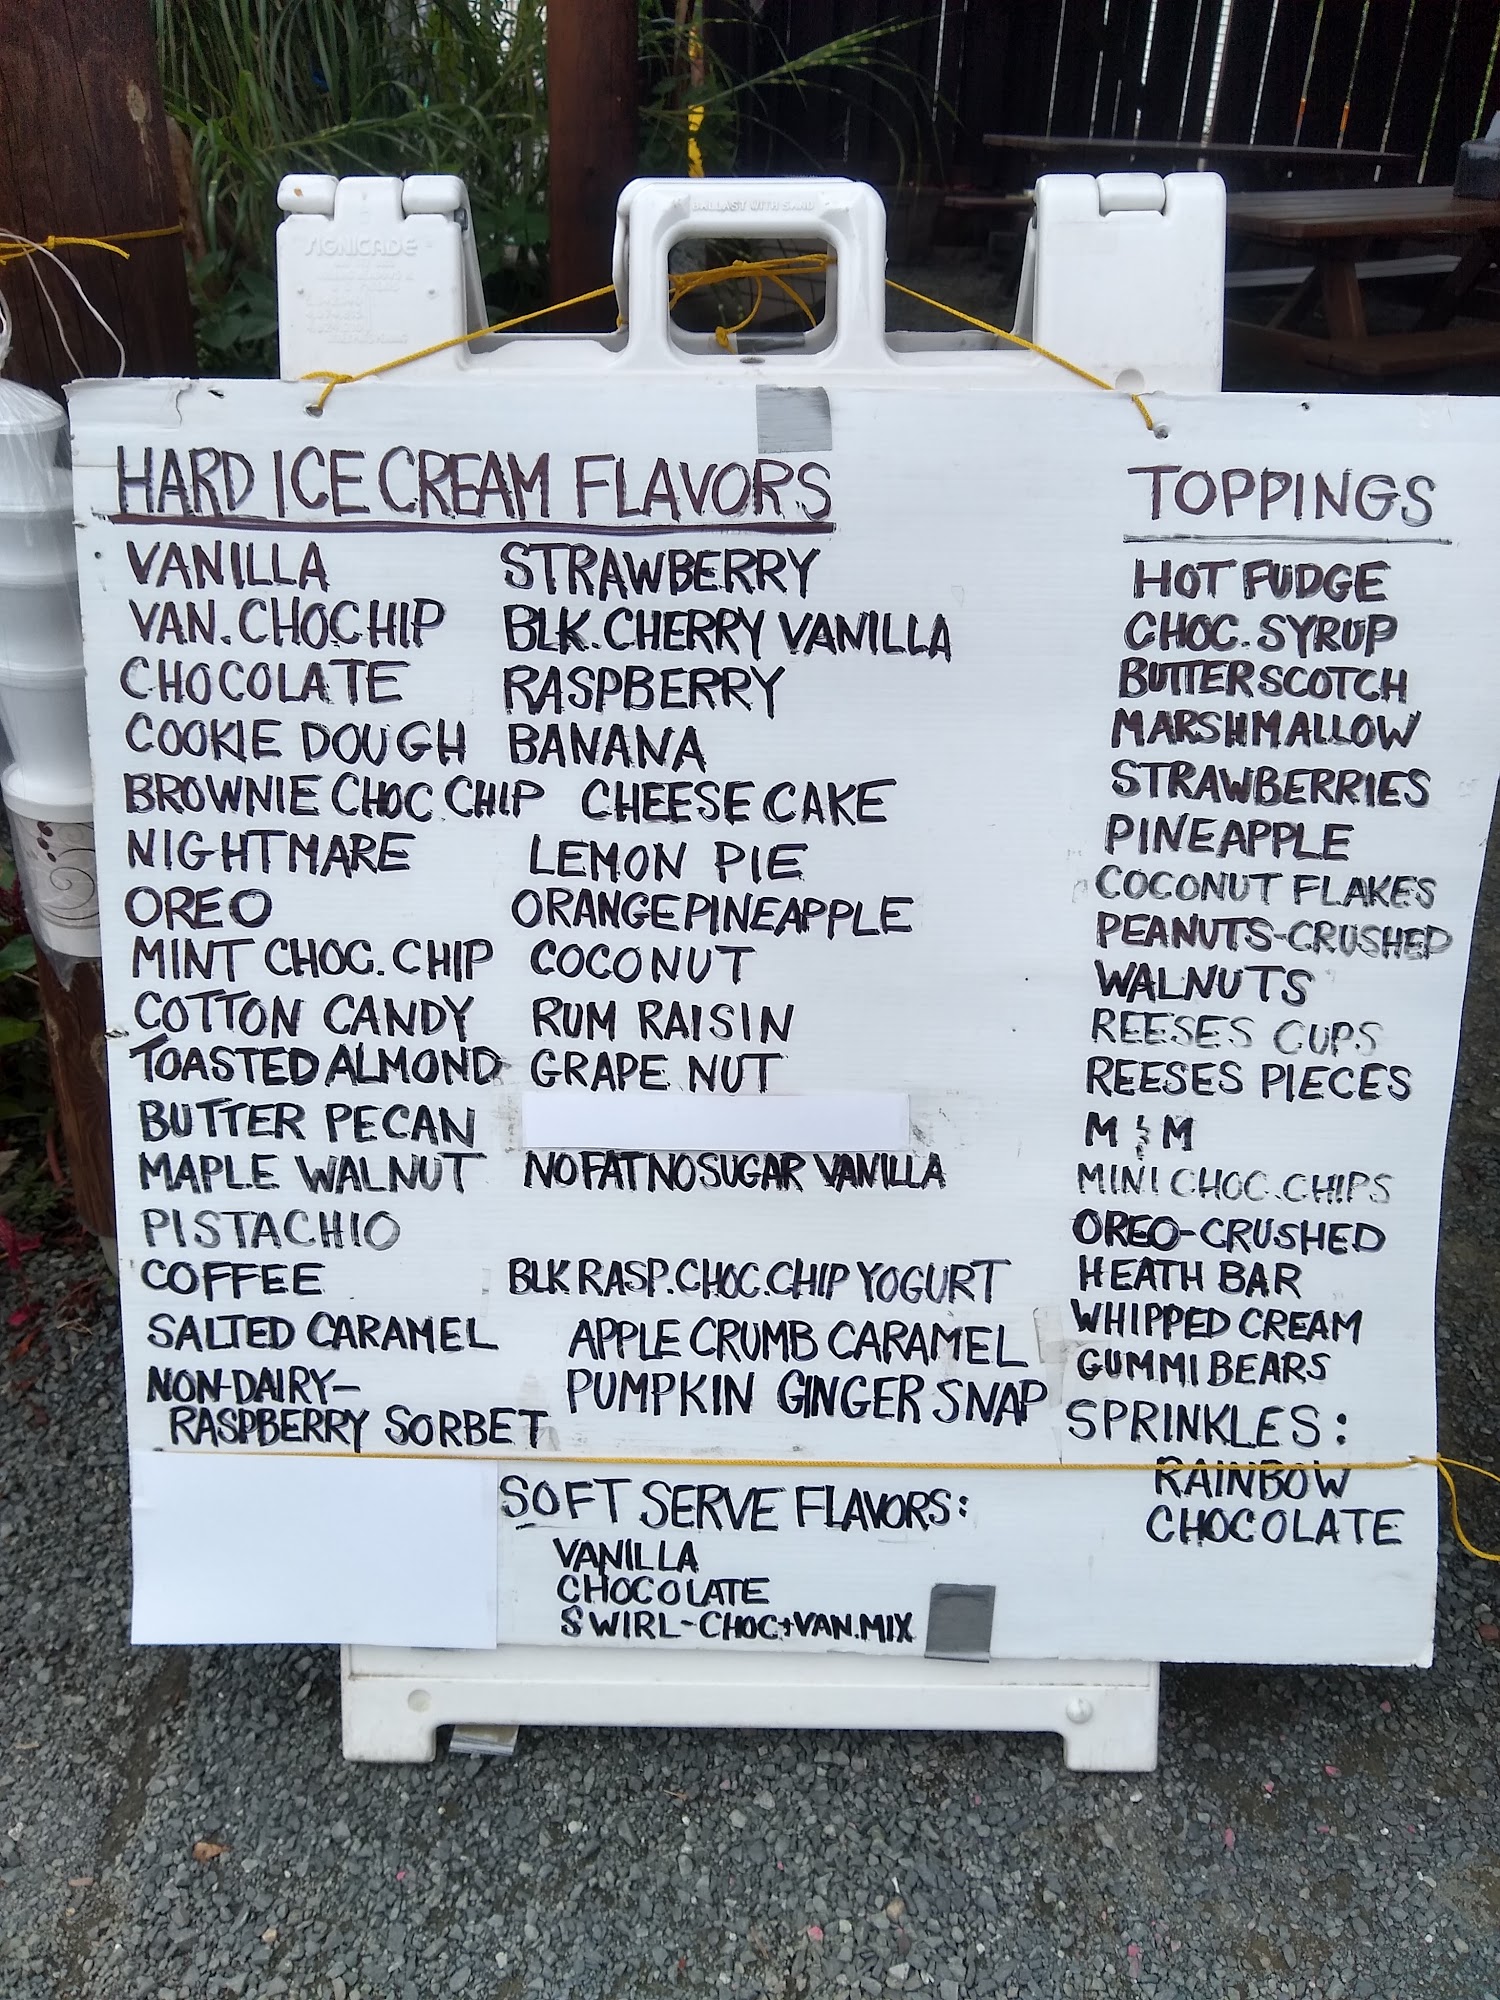 BALLAST WITH SAND
SIGNICADE
HARD ICE CREAM FLAVORS
VANILLA
VAN. CHOCHIP
CHOCOLATE
COOKIE DOUGH
BROWNIE CHOC CHIP
NIGHTMARE
OREO
MINT CHOC. CHIP
COTTON CANDY
TOASTED ALMOND
BUTTER PECAN
MAPLE WALNUT
PISTACHIO
COFFEE
SALTED CARAMEL
NON-DAIRY-
RASPBERRY SORBET
STRAWBERRY
BLK. CHERRY VANILLA
RASPBERRY
BANANA
CHEESE CAKE
LEMON PIE
ORANGEPINEAPPLE
COCONUT
RUM RAISIN
GRAPE NUT
NOFATNOSUGAR VANILLA
BLK RASP. CHOC. CHIP YOGURT
APPLE CRUMB CARAMEL
PUMPKIN GINGER SNAP
SOFT SERVE FLAVORS:
VANILLA
CHOCOLATE
SWIRL-CHOC+VAN. MIX
TOPPINGS
HOT FUDGE
CHOC. SYRUP
BUTTERSCOTCH
MARSHMALLOW
STRAWBERRIES
PINEAPPLE
COCONUT FLAKES
PEANUTS-CRUSHED
WALNUTS
REESES CUPS
REESES PIECES
M & M
MINI CHOC. CHIPS
OREO-CRUSHED
HEATH BAR
WHIPPED CREAM
GUMMI BEARS
SPRINKLES:
RAINBOW
CHOCOLATE